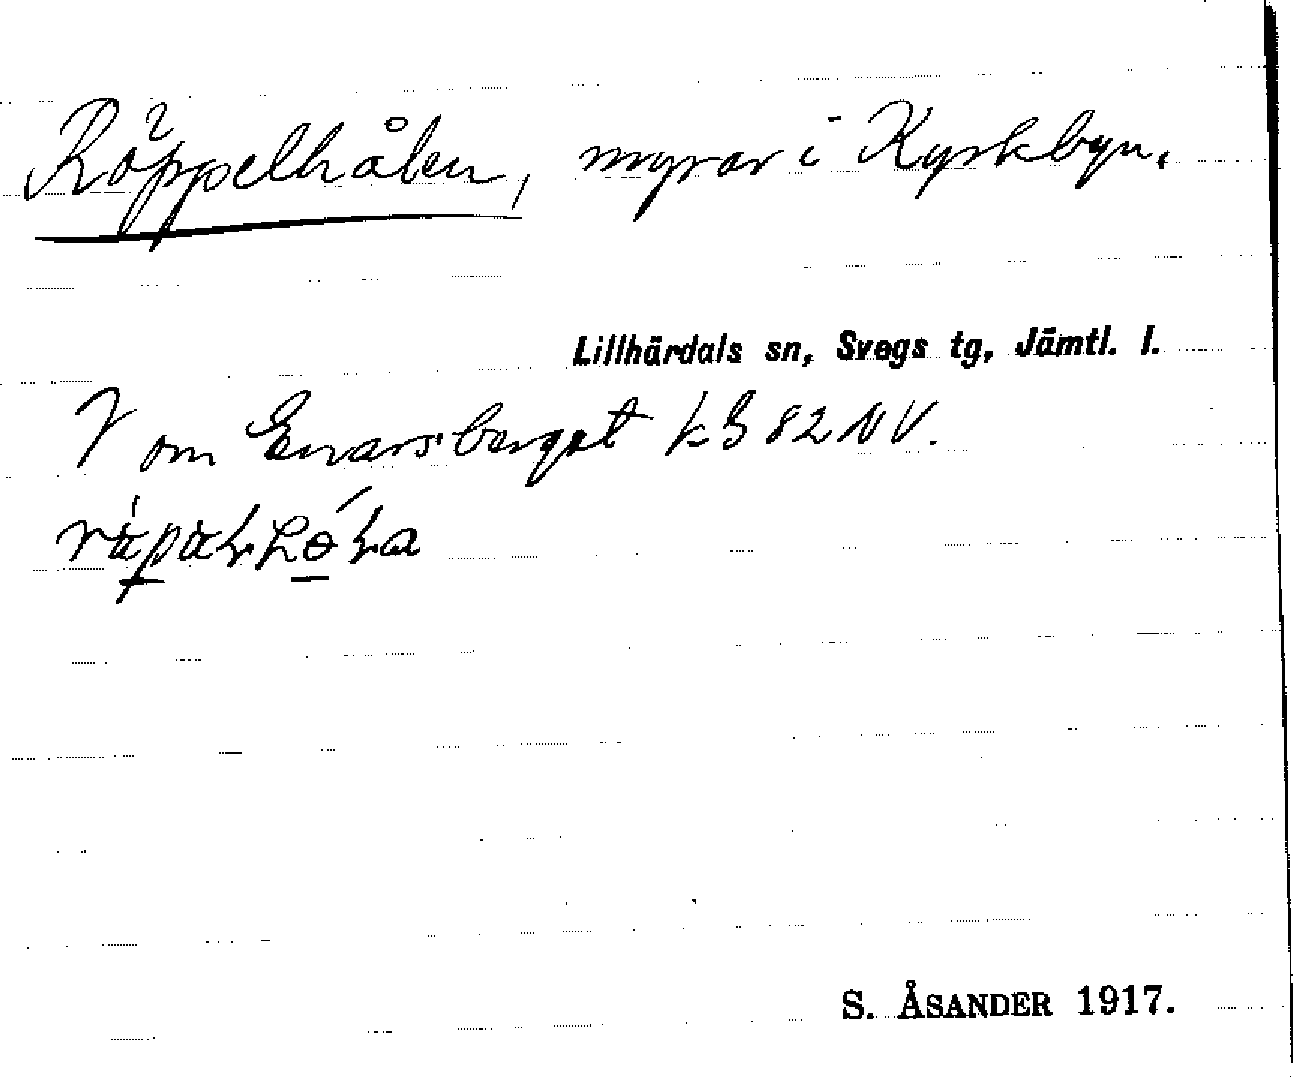 Röppelhålen, myrar i Kyrkbyn.
Lillhärdals sn, Svegs tg, Jämtl. l.
V om Enarsberget kB 82 NV.
S. ÅSANDER 1917.